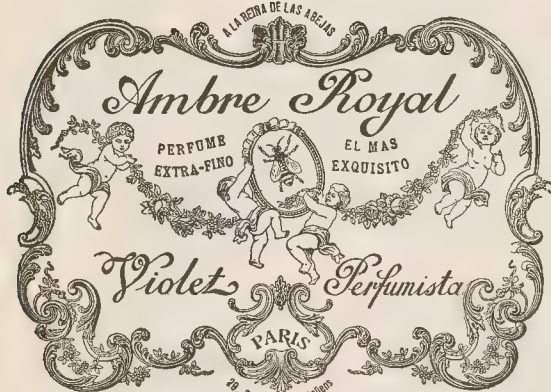 A LA REINA DE LAS ABEJAS
Ambre Royal
PERFUME EXTRA-FINO
EL MAS EXQUISITO
Violet Perfumista
PARIS
29